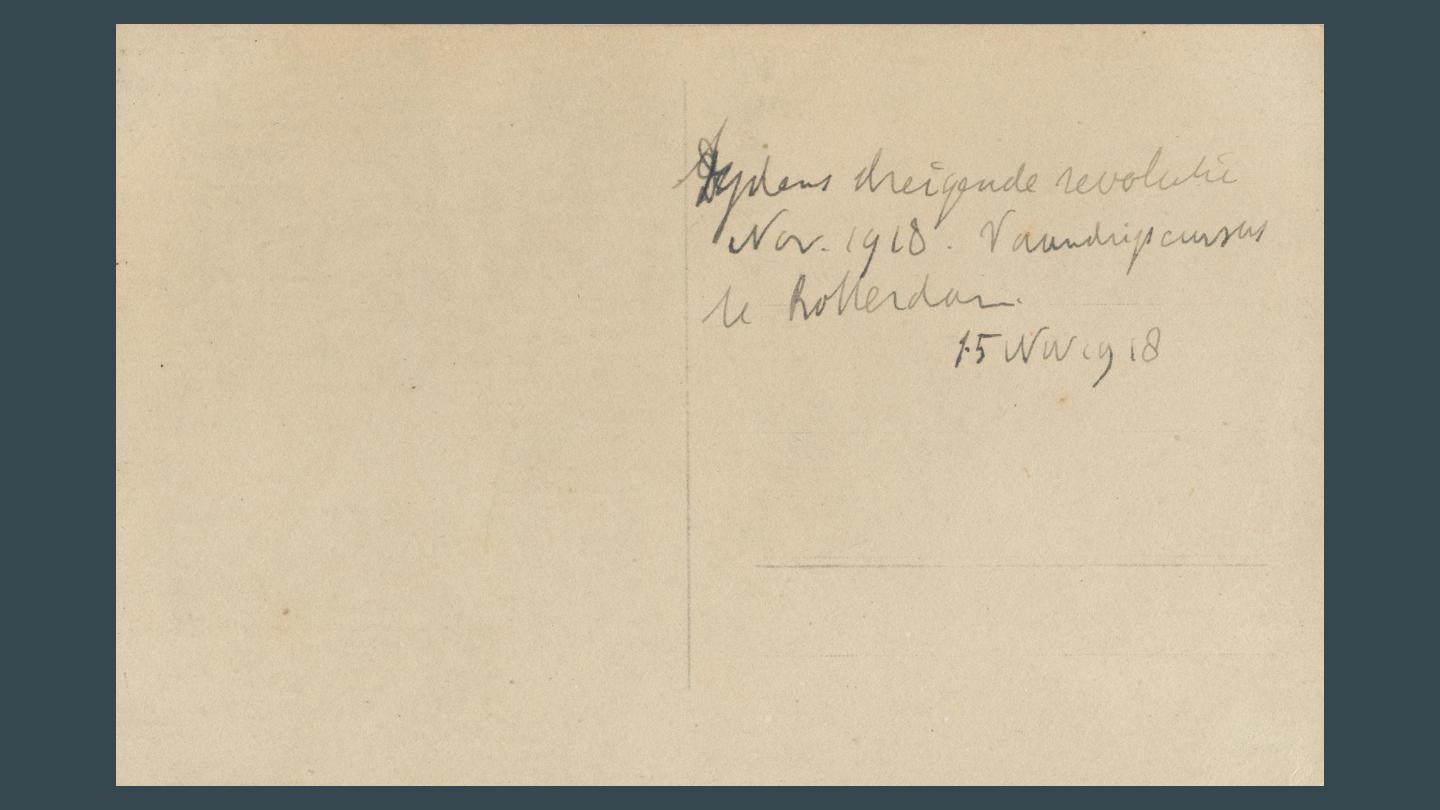 Tydens dreigende revolutie
Nov. 1918. Vaandrigscursus
te Rotterdam.
15 Nov 1918